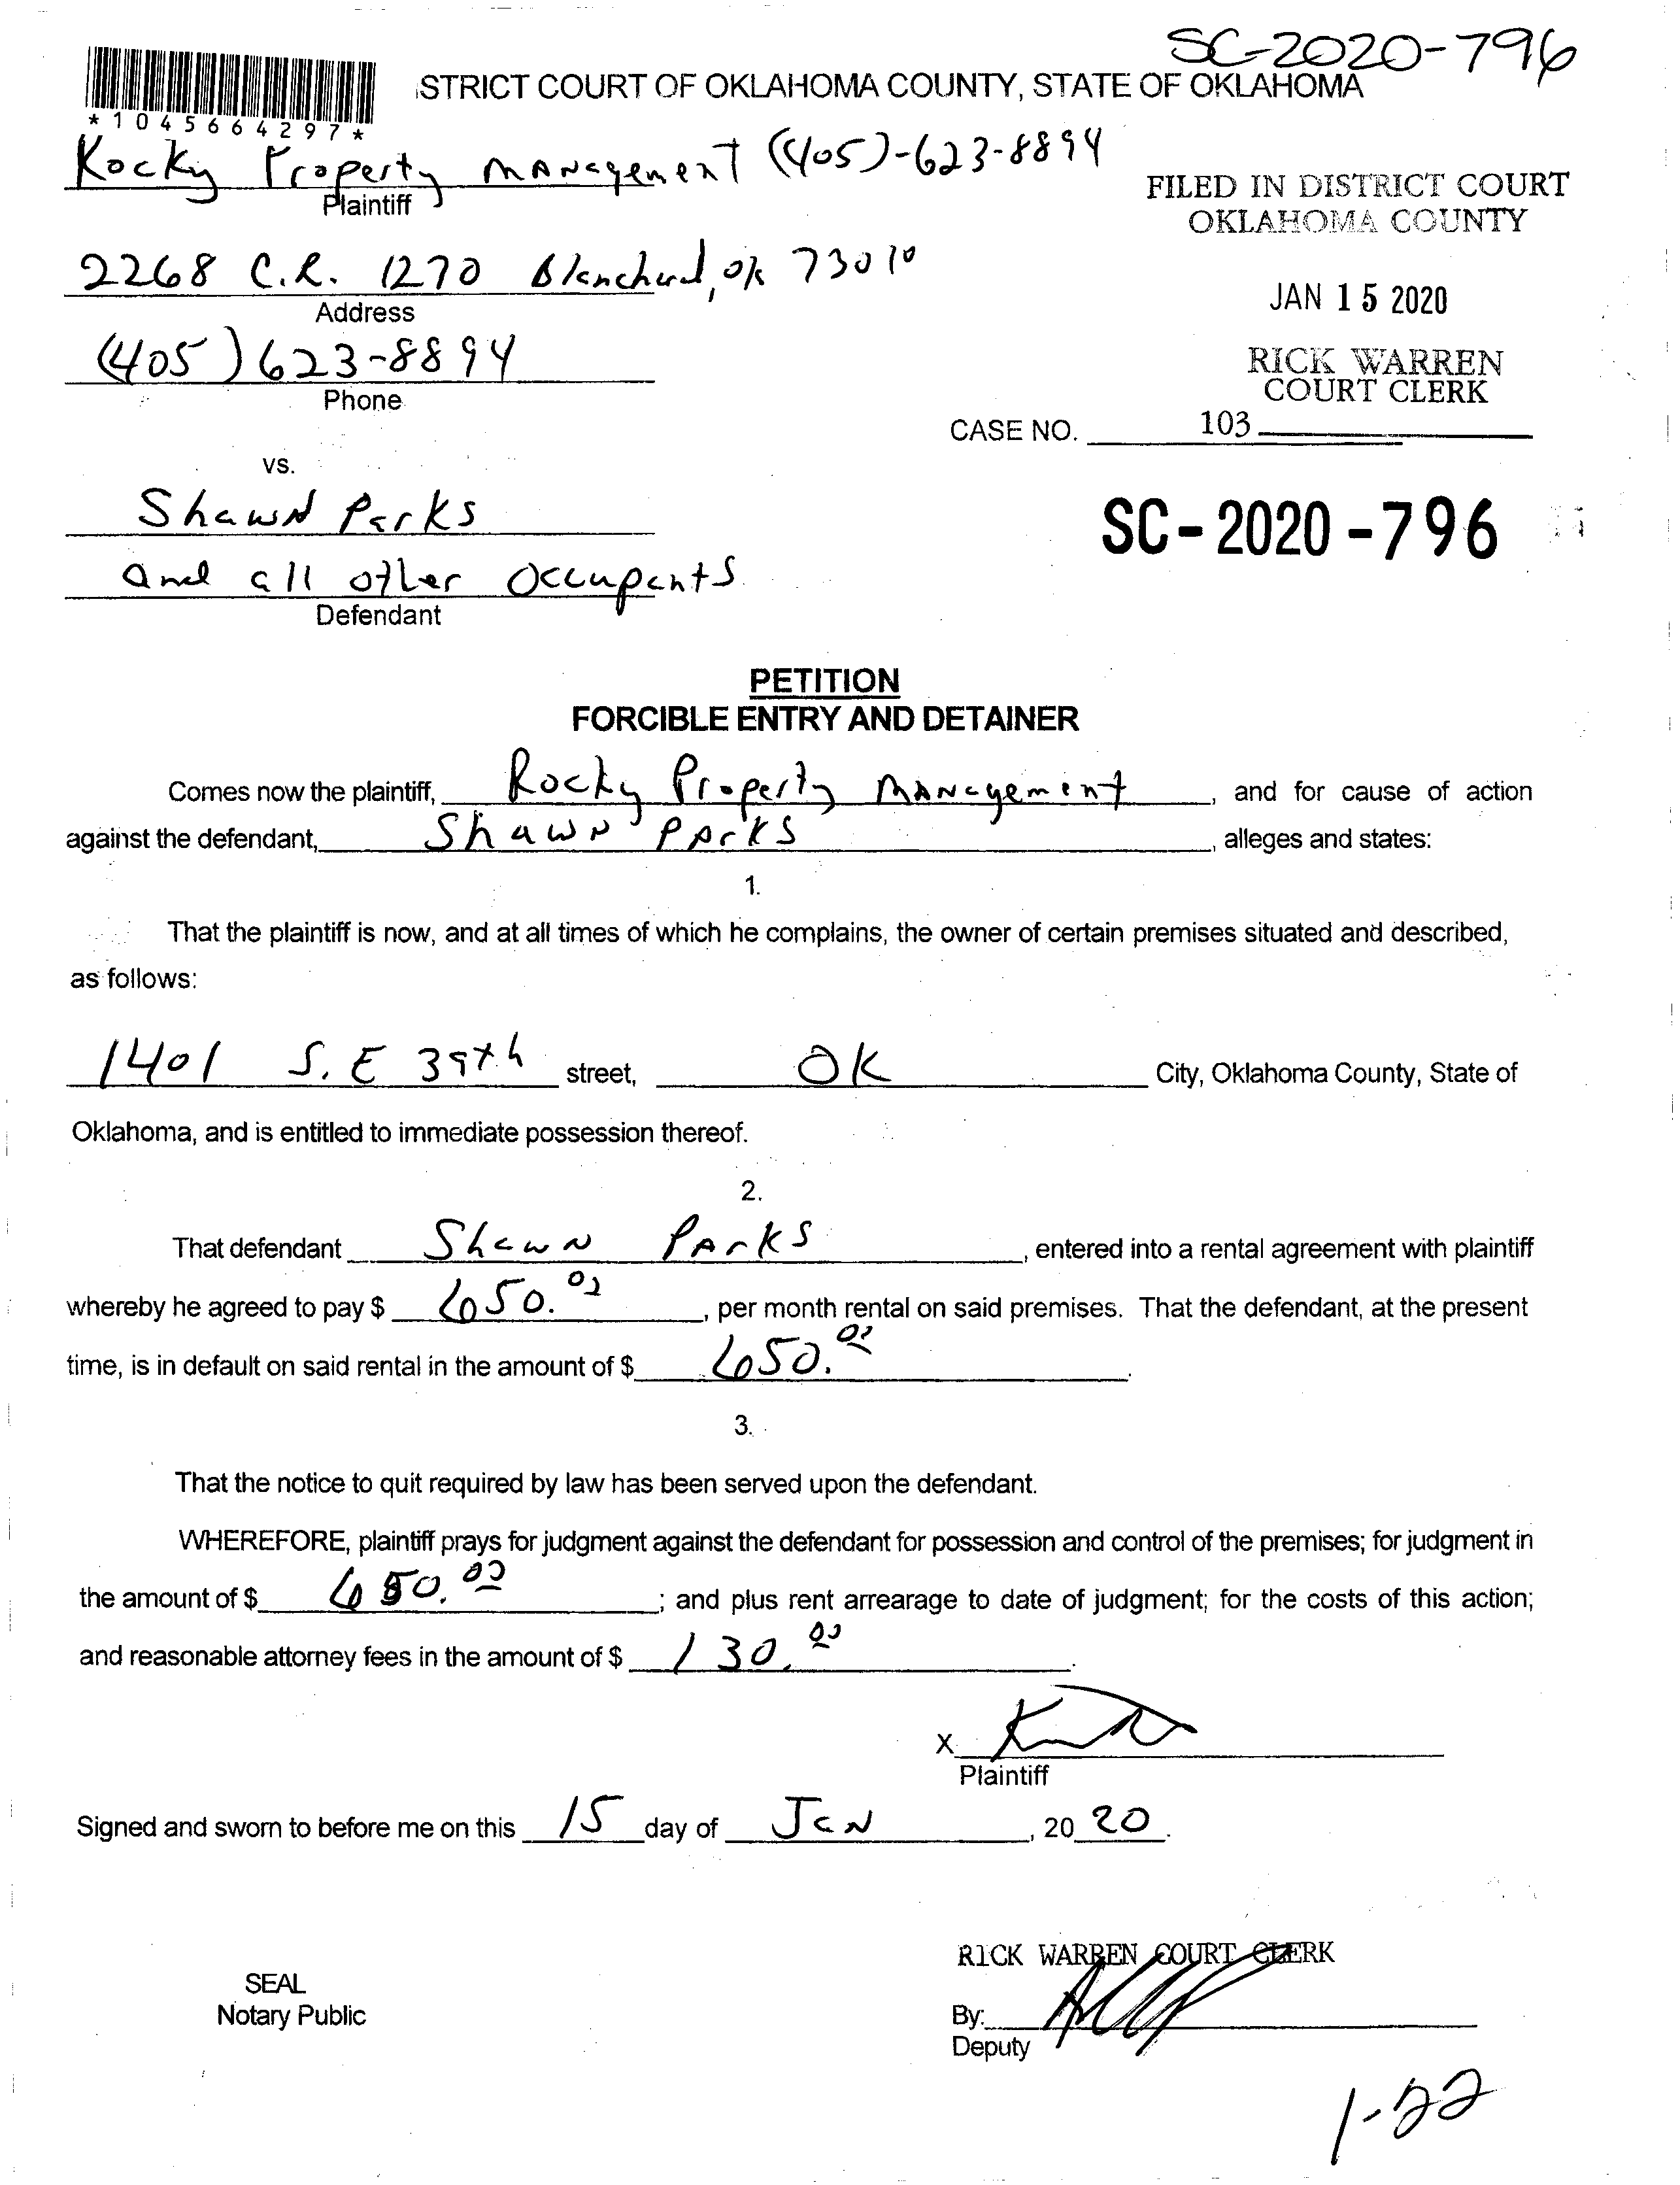 SC-2020-796
STRICT COURT OF OKLAHOMA COUNTY, STATE OF OKLAHOMA
*1045664297*
Rocky Property Management (405)-623-8894
Plaintiff
FILED IN DISTRICT COURT
OKLAHOMA COUNTY
2268 C.R. 1270 Blanchard, ok 73010
Address
JAN 15 2020
(405) 623-8894
Phone
RICK WARREN
COURT CLERK
CASE NO. 103
vs.
Shawn Parks
SC-2020-796
and all other Occupants
Defendant
PETITION
FORCIBLE ENTRY AND DETAINER
Comes now the plaintiff, Rocky Property Management, and for cause of action
against the defendant, Shawn Parks, alleges and states:
1.
That the plaintiff is now, and at all times of which he complains, the owner of certain premises situated and described,
as follows:
1401 S.E 39th street, OK City, Oklahoma County, State of
Oklahoma, and is entitled to immediate possession thereof.
2.
That defendant Shawn Parks, entered into a rental agreement with plaintiff
whereby he agreed to pay $ 650.00, per month rental on said premises. That the defendant, at the present
time, is in default on said rental in the amount of $ 650.00.
3.
That the notice to quit required by law has been served upon the defendant.
WHEREFORE, plaintiff prays for judgment against the defendant for possession and control of the premises; for judgment in
the amount of $ 650.00; and plus rent arrearage to date of judgment; for the costs of this action;
and reasonable attorney fees in the amount of $ 130.00.
X
Plaintiff
Signed and sworn to before me on this 15 day of Jan, 20 20.
RICK WARREN COURT CLERK
SEAL
Notary Public
By:
Deputy
1-22